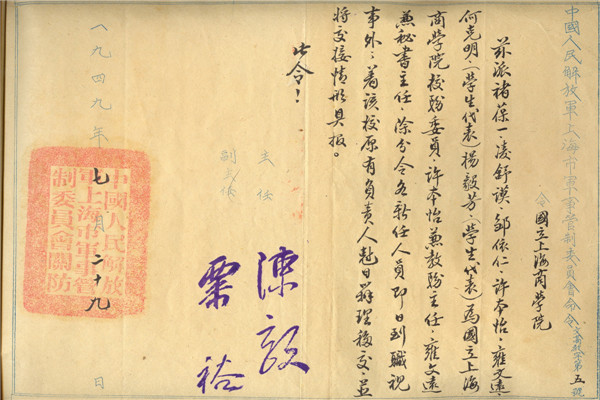 中國人民解放軍上海市軍事管制委員會命令
第五號
令國立上海商學院
茲派褚葆一、凌舒謨、鄒依仁、許本怡、雍文遠、
何克明、(學生代表)楊毅芳、(學生代表)為國立上海
商學院校務委員、許本怡兼教務主任、雍文遠
兼秘書主任、除分令各新任人員即日到職視
事外、着該校原有負責人尅日辦理移交、並
將交接情形具报。
此令!
主任
副主任
陳毅
粟裕
一九四九年七月二十九日
中國人民解放
軍上海市軍事管
制委員會關防